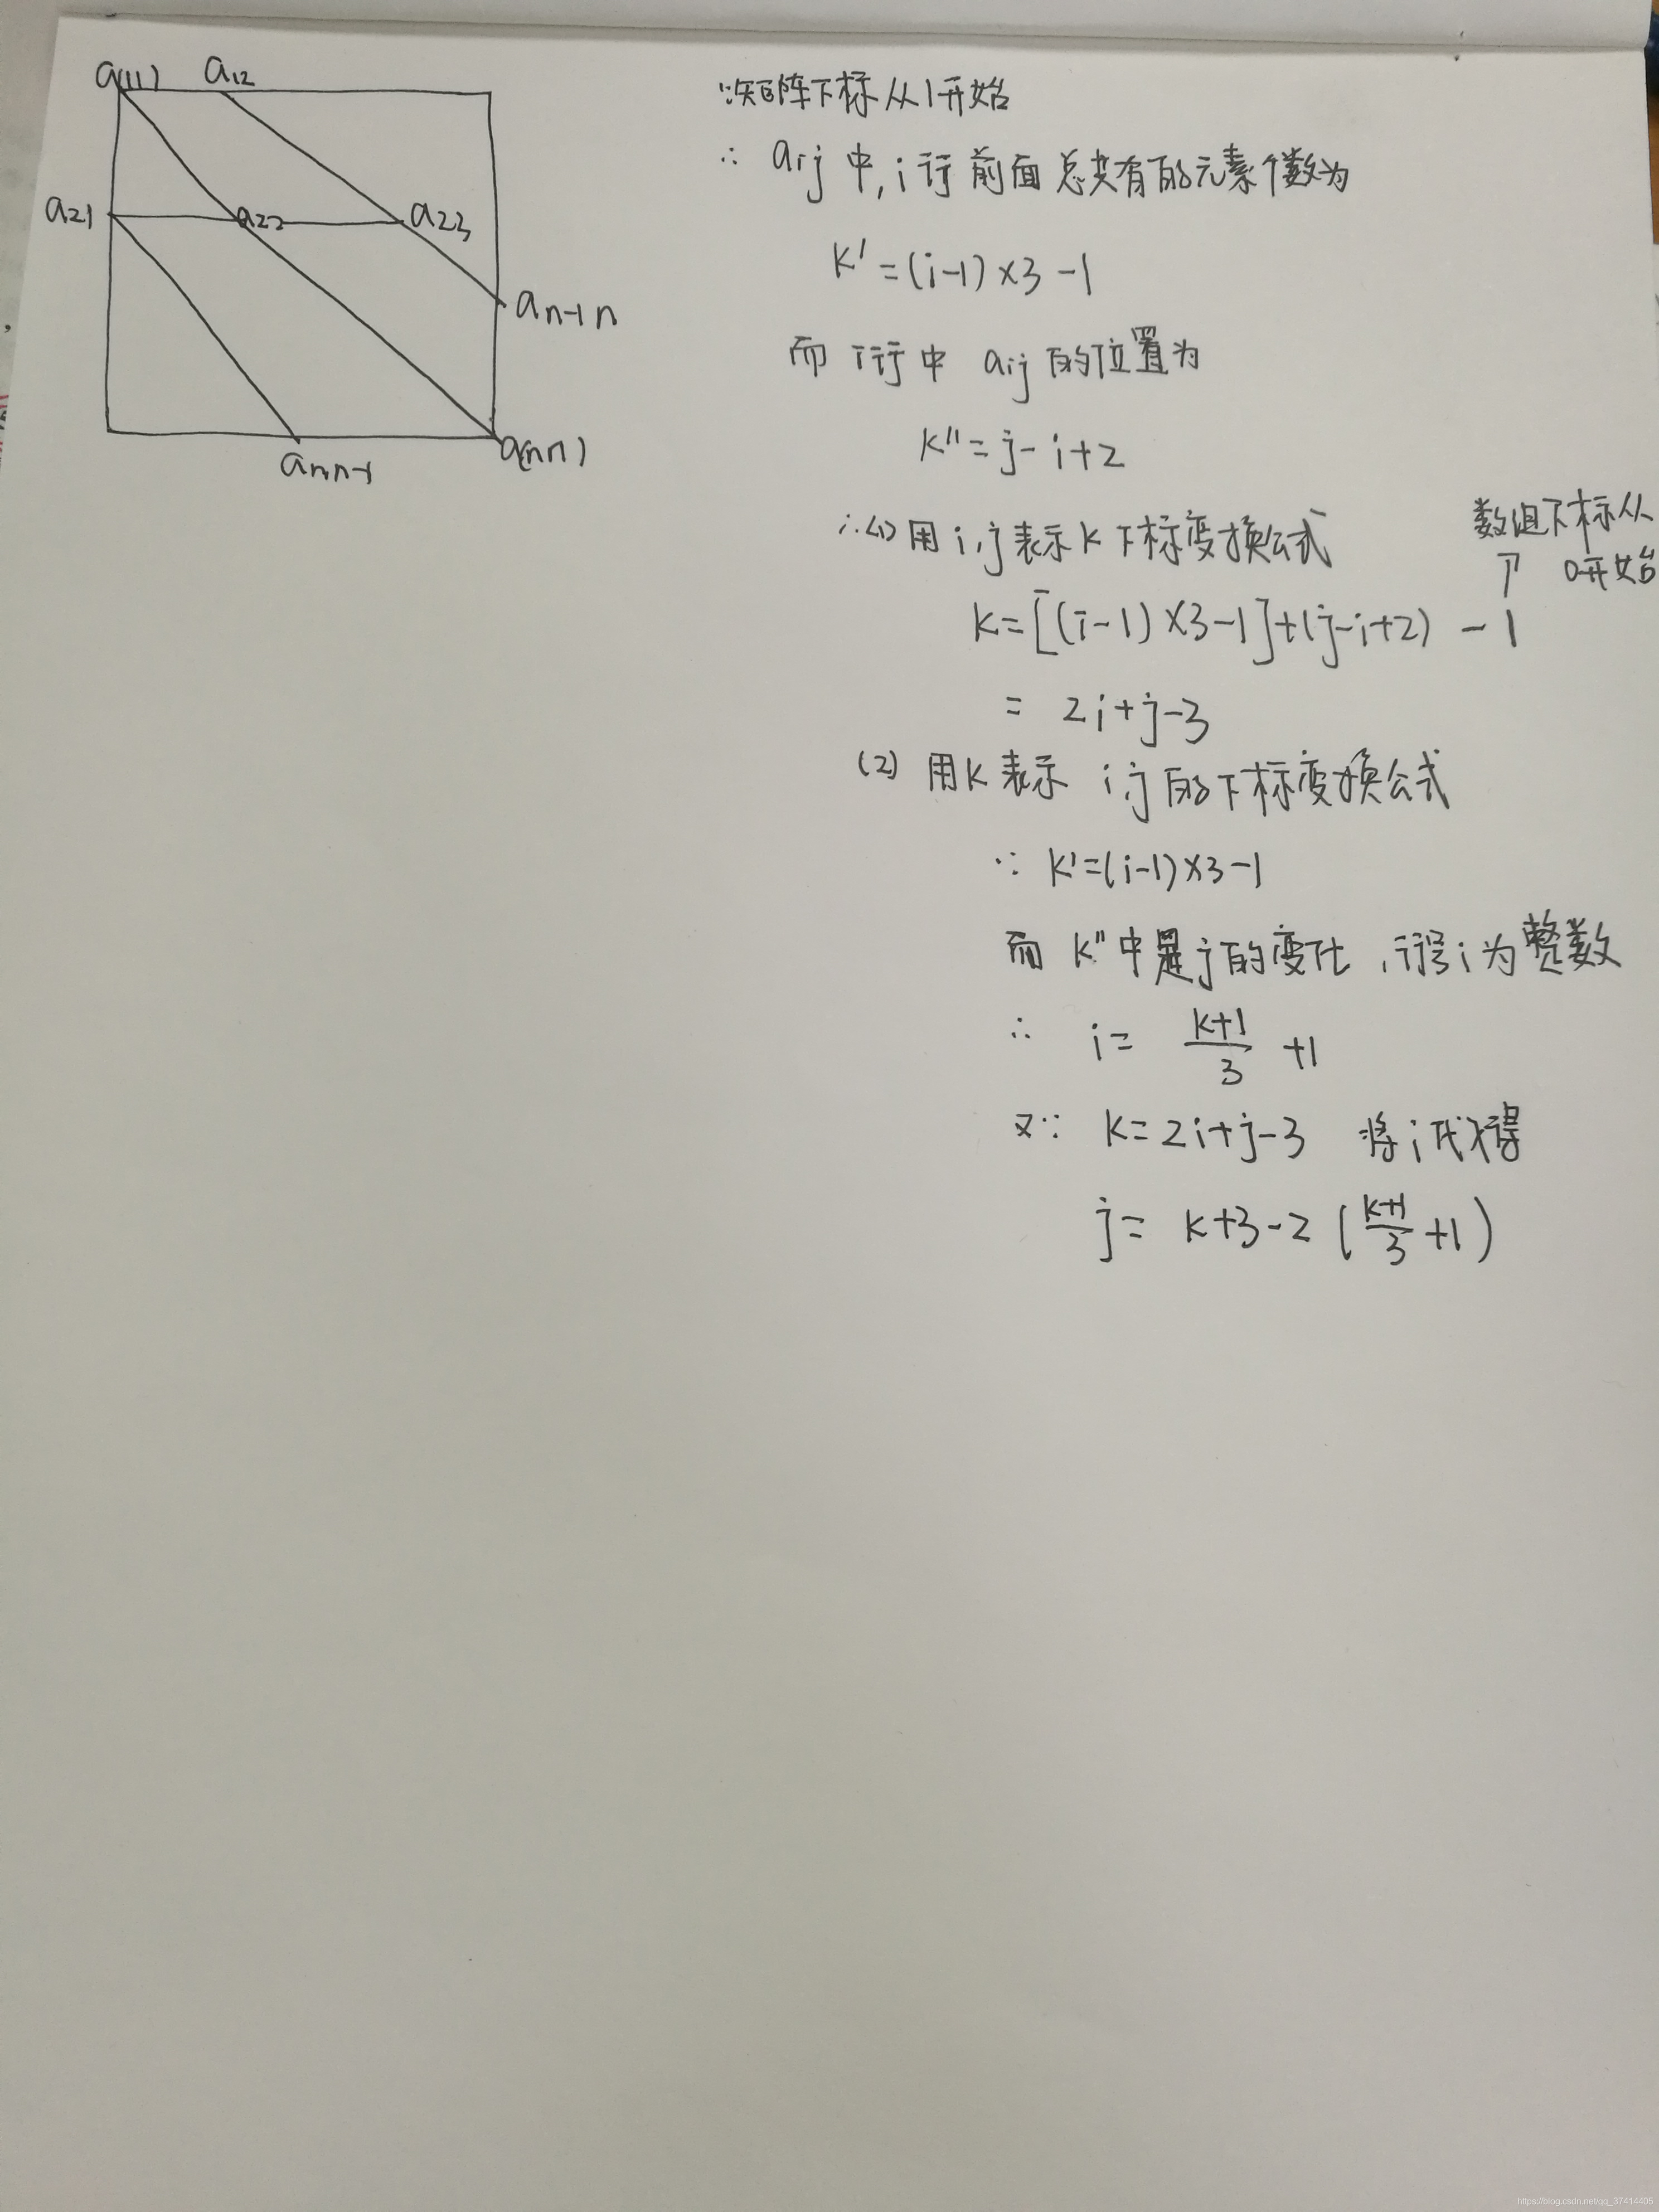 a(11) a12
a21 a22 a23
an-1 n
ann-1 a(nn)
∵矩阵下标从1开始
∴ aij 中,i行前面总共有的元素个数为
K' = (i-1)×3-1
而 i行中 aij 的位置为
K'' = j-i+2
∴(1)用i,j表示k下标变换公式
数组下标从
↑ 0开始
K=[(i-1)×3-1]+(j-i+2) -1
= 2i+j-3
(2) 用K表示 i,j的下标变换公式
∵ K'=(i-1)×3-1
而 K''中是j的变化,i为整数
∴ i= (k+1)/3 +1
又∵ K=2i+j-3 将i代入得
j= K+3-2((k+1)/3+1)
https://blog.csdn.net/qq_37414405